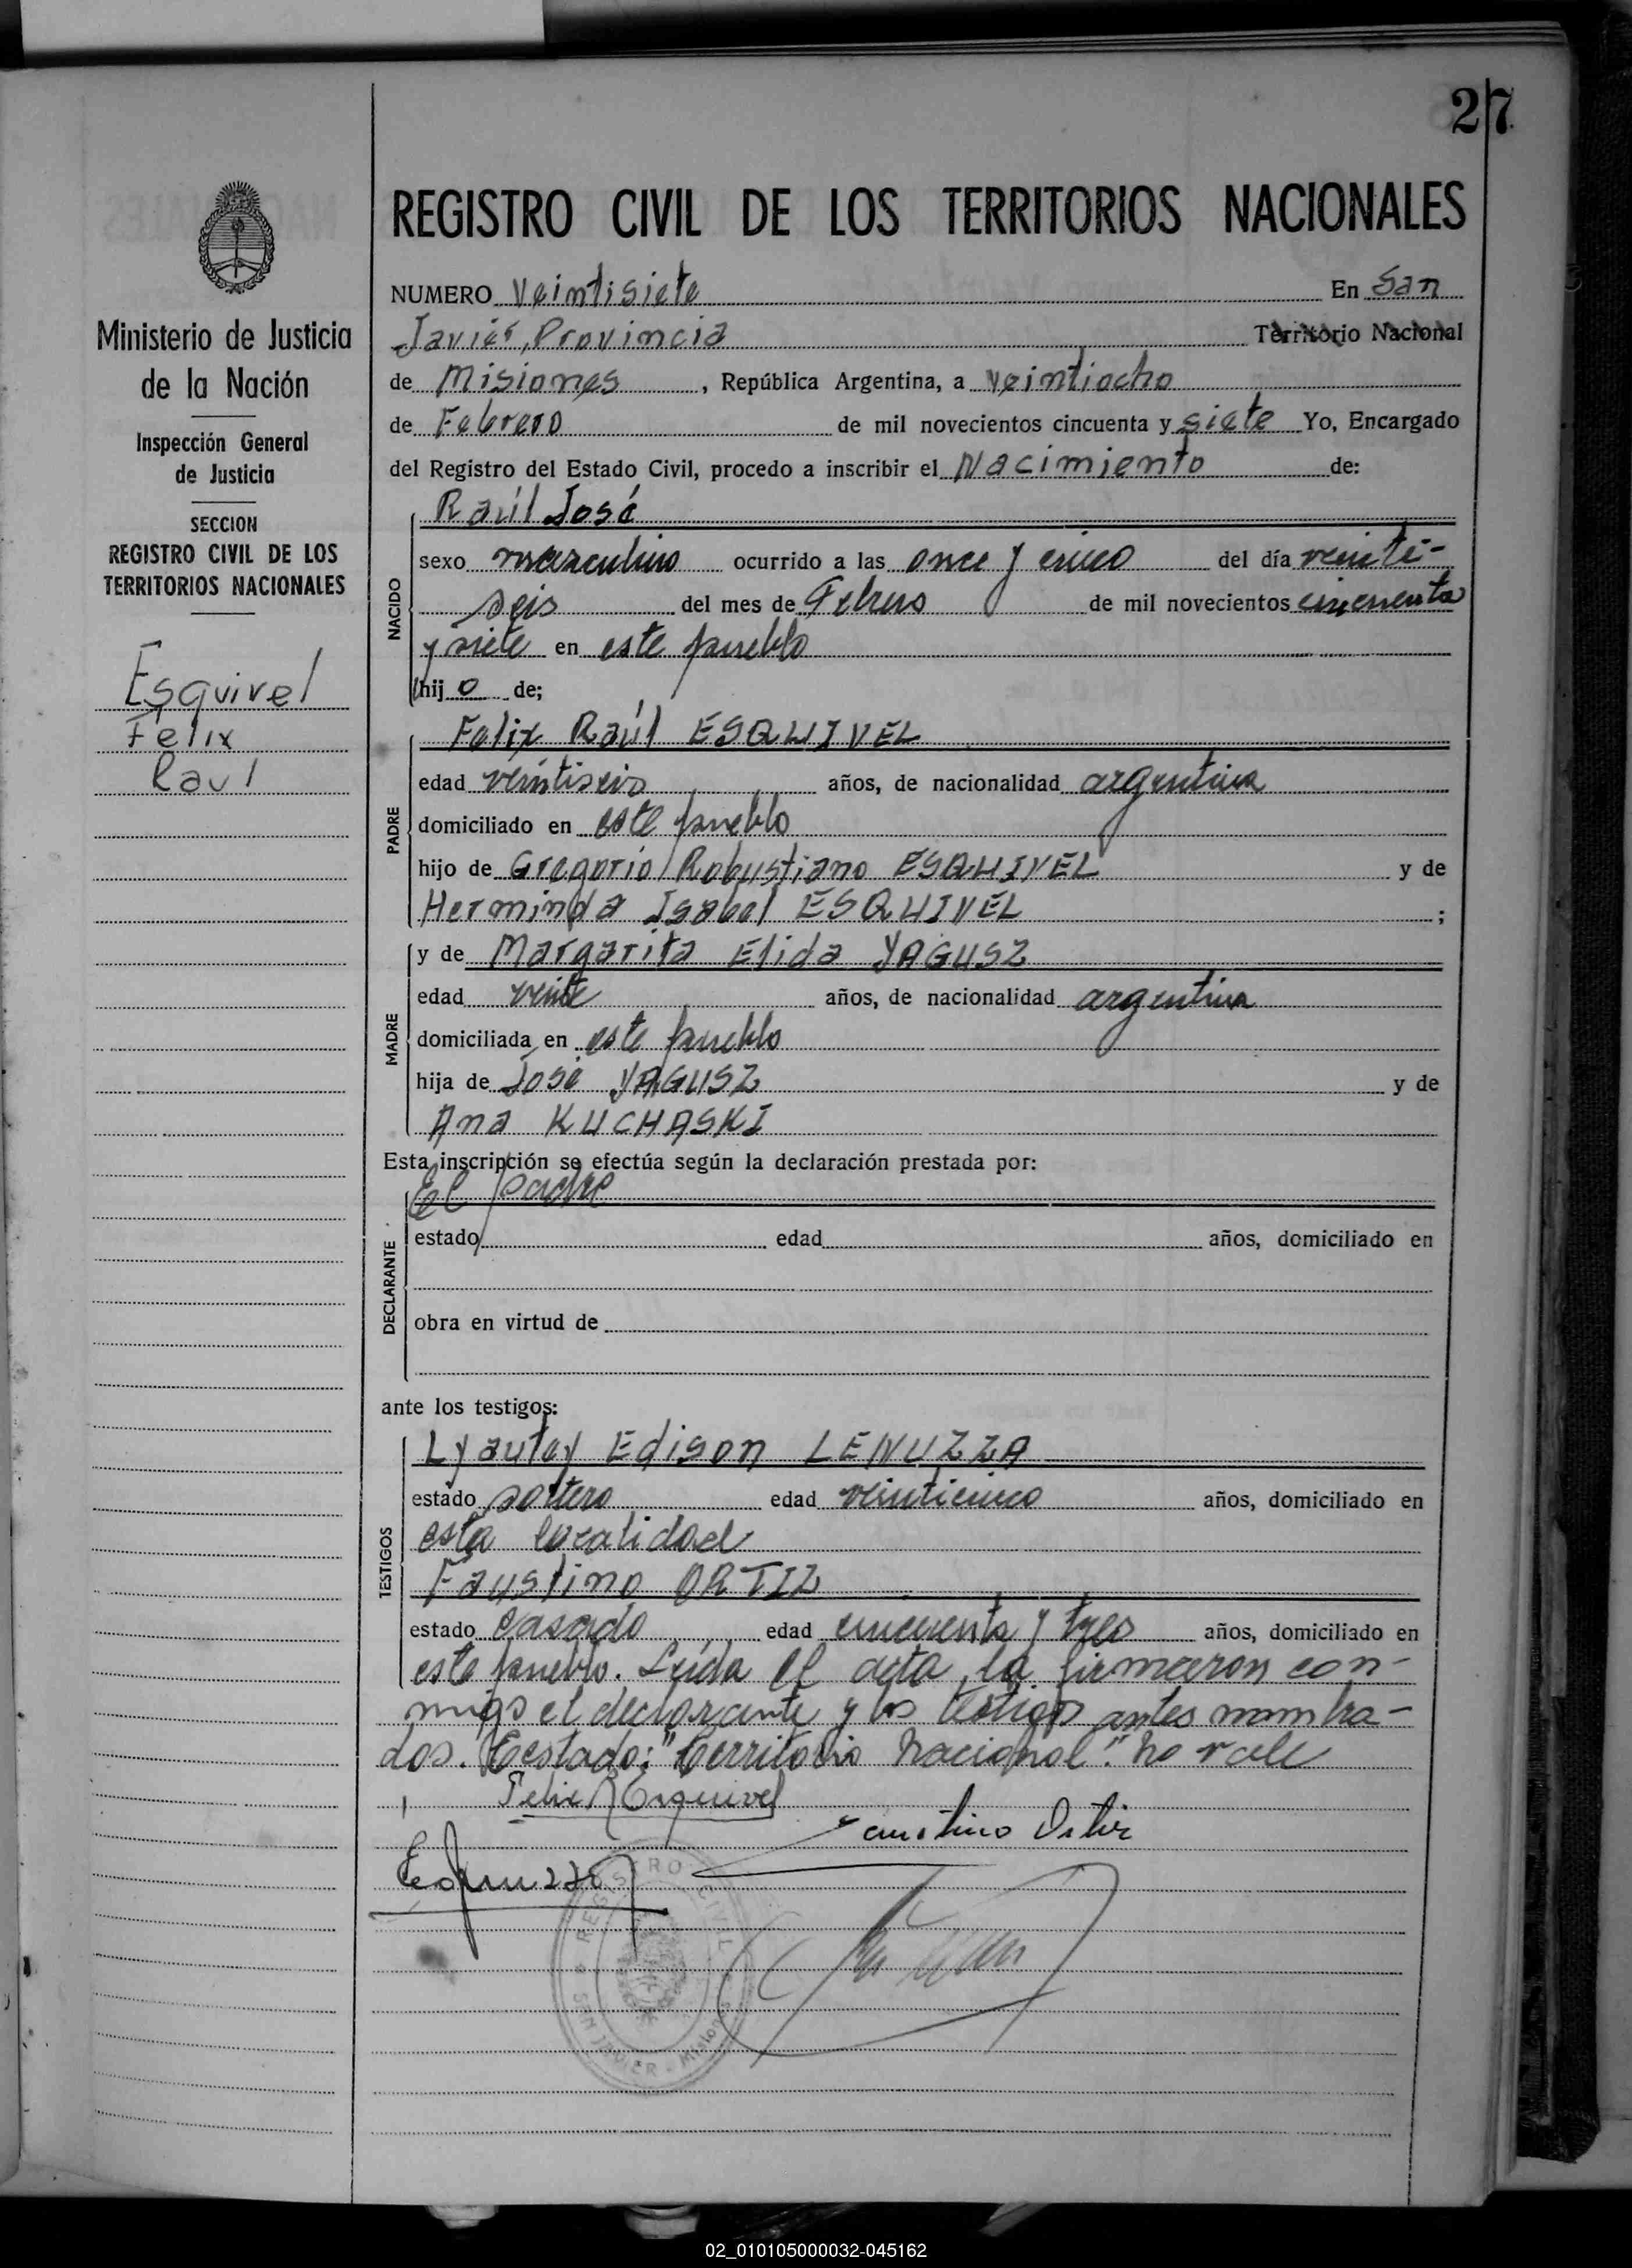 27
REGISTRO CIVIL DE LOS TERRITORIOS NACIONALES
Ministerio de Justicia
de la Nación
Inspección General
de Justicia
SECCION
REGISTRO CIVIL DE LOS
TERRITORIOS NACIONALES
Esquivel
Félix
Raul
NUMERO Veintisiete En San
Javier, Provincia Territorio Nacional
de Misiones, República Argentina, a veintiocho
de Febrero de mil novecientos cincuenta y siete Yo, Encargado
del Registro del Estado Civil, procedo a inscribir el Nacimiento de:
NACIDO
Raúl José
sexo masculino ocurrido a las once y cinco del día veinti-
seis del mes de Febrero de mil novecientos cincuenta
y siete en este pueblo
hijo de;
PADRE
Felix Raúl ESQUIVEL
edad veintiseis años, de nacionalidad argentina
domiciliado en este pueblo
hijo de Gregorio Robustiano ESQUIVEL y de
Herminda Isabel ESQUIVEL ;
MADRE
y de Margarita Elida YAGUSZ
edad veinte años, de nacionalidad argentina
domiciliada en este pueblo
hija de José YAGUSZ y de
Ana KUCHASKI
Esta inscripción se efectúa según la declaración prestada por:
DECLARANTE
el padre
estado edad años, domiciliado en
obra en virtud de
ante los testigos:
TESTIGOS
Lyautey Edison LENUZZA
estado soltero edad veinticinco años, domiciliado en
esta localidad
Faustino ORTIZ
estado casado edad cincuenta y tres años, domiciliado en
este pueblo. Leída el acta, la firmaron con-
migo el declarante y los testigos antes nombra-
dos. Testado: "Territorio Nacional". no vale
Felix R Esquivel
Faustino Ortiz
REGISTRO CIVIL
SAN JAVIER - Misiones
02_010105000032-045162